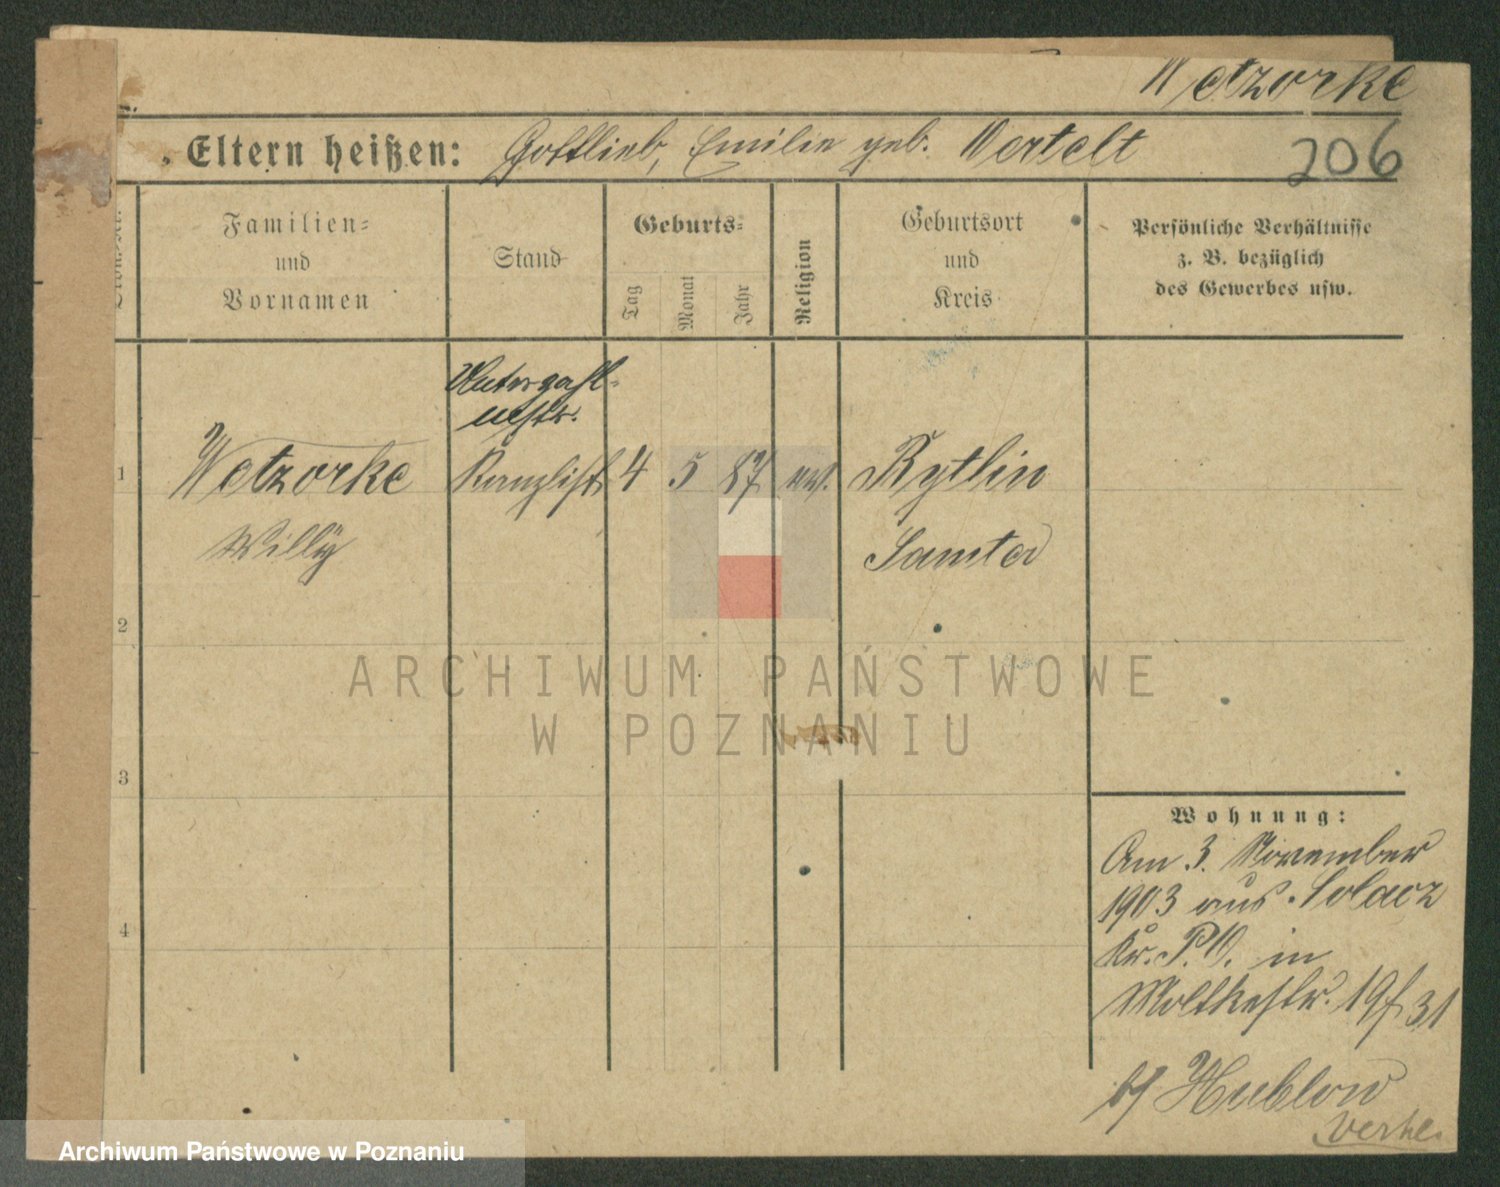 Wetzorke
Eltern heißen: Gottlieb, Emilie geb. Wertelt
206
Familien-
und
Vornamen
Stand
Geburts-
Tag
Monat
Jahr
Religion
Geburtsort
und
Kreis
Persönliche Verhältnisse
z. B. bezüglich
des Gewerbes usw.
Unterzahl-
mstr.
1 Wetzorke Kanzlist 4 5 87 evgl. Rytlin
Willÿ Samter
2
ARCHIWUM PAŃSTWOWE
W POZNANIU
3
Wohnung:
Am 3. November
1903 aus Solacz
4
Kr. P. O. in
Moltkestr. 19 31
b/ Hublow
verhe.
Archiwum Państwowe w Poznaniu